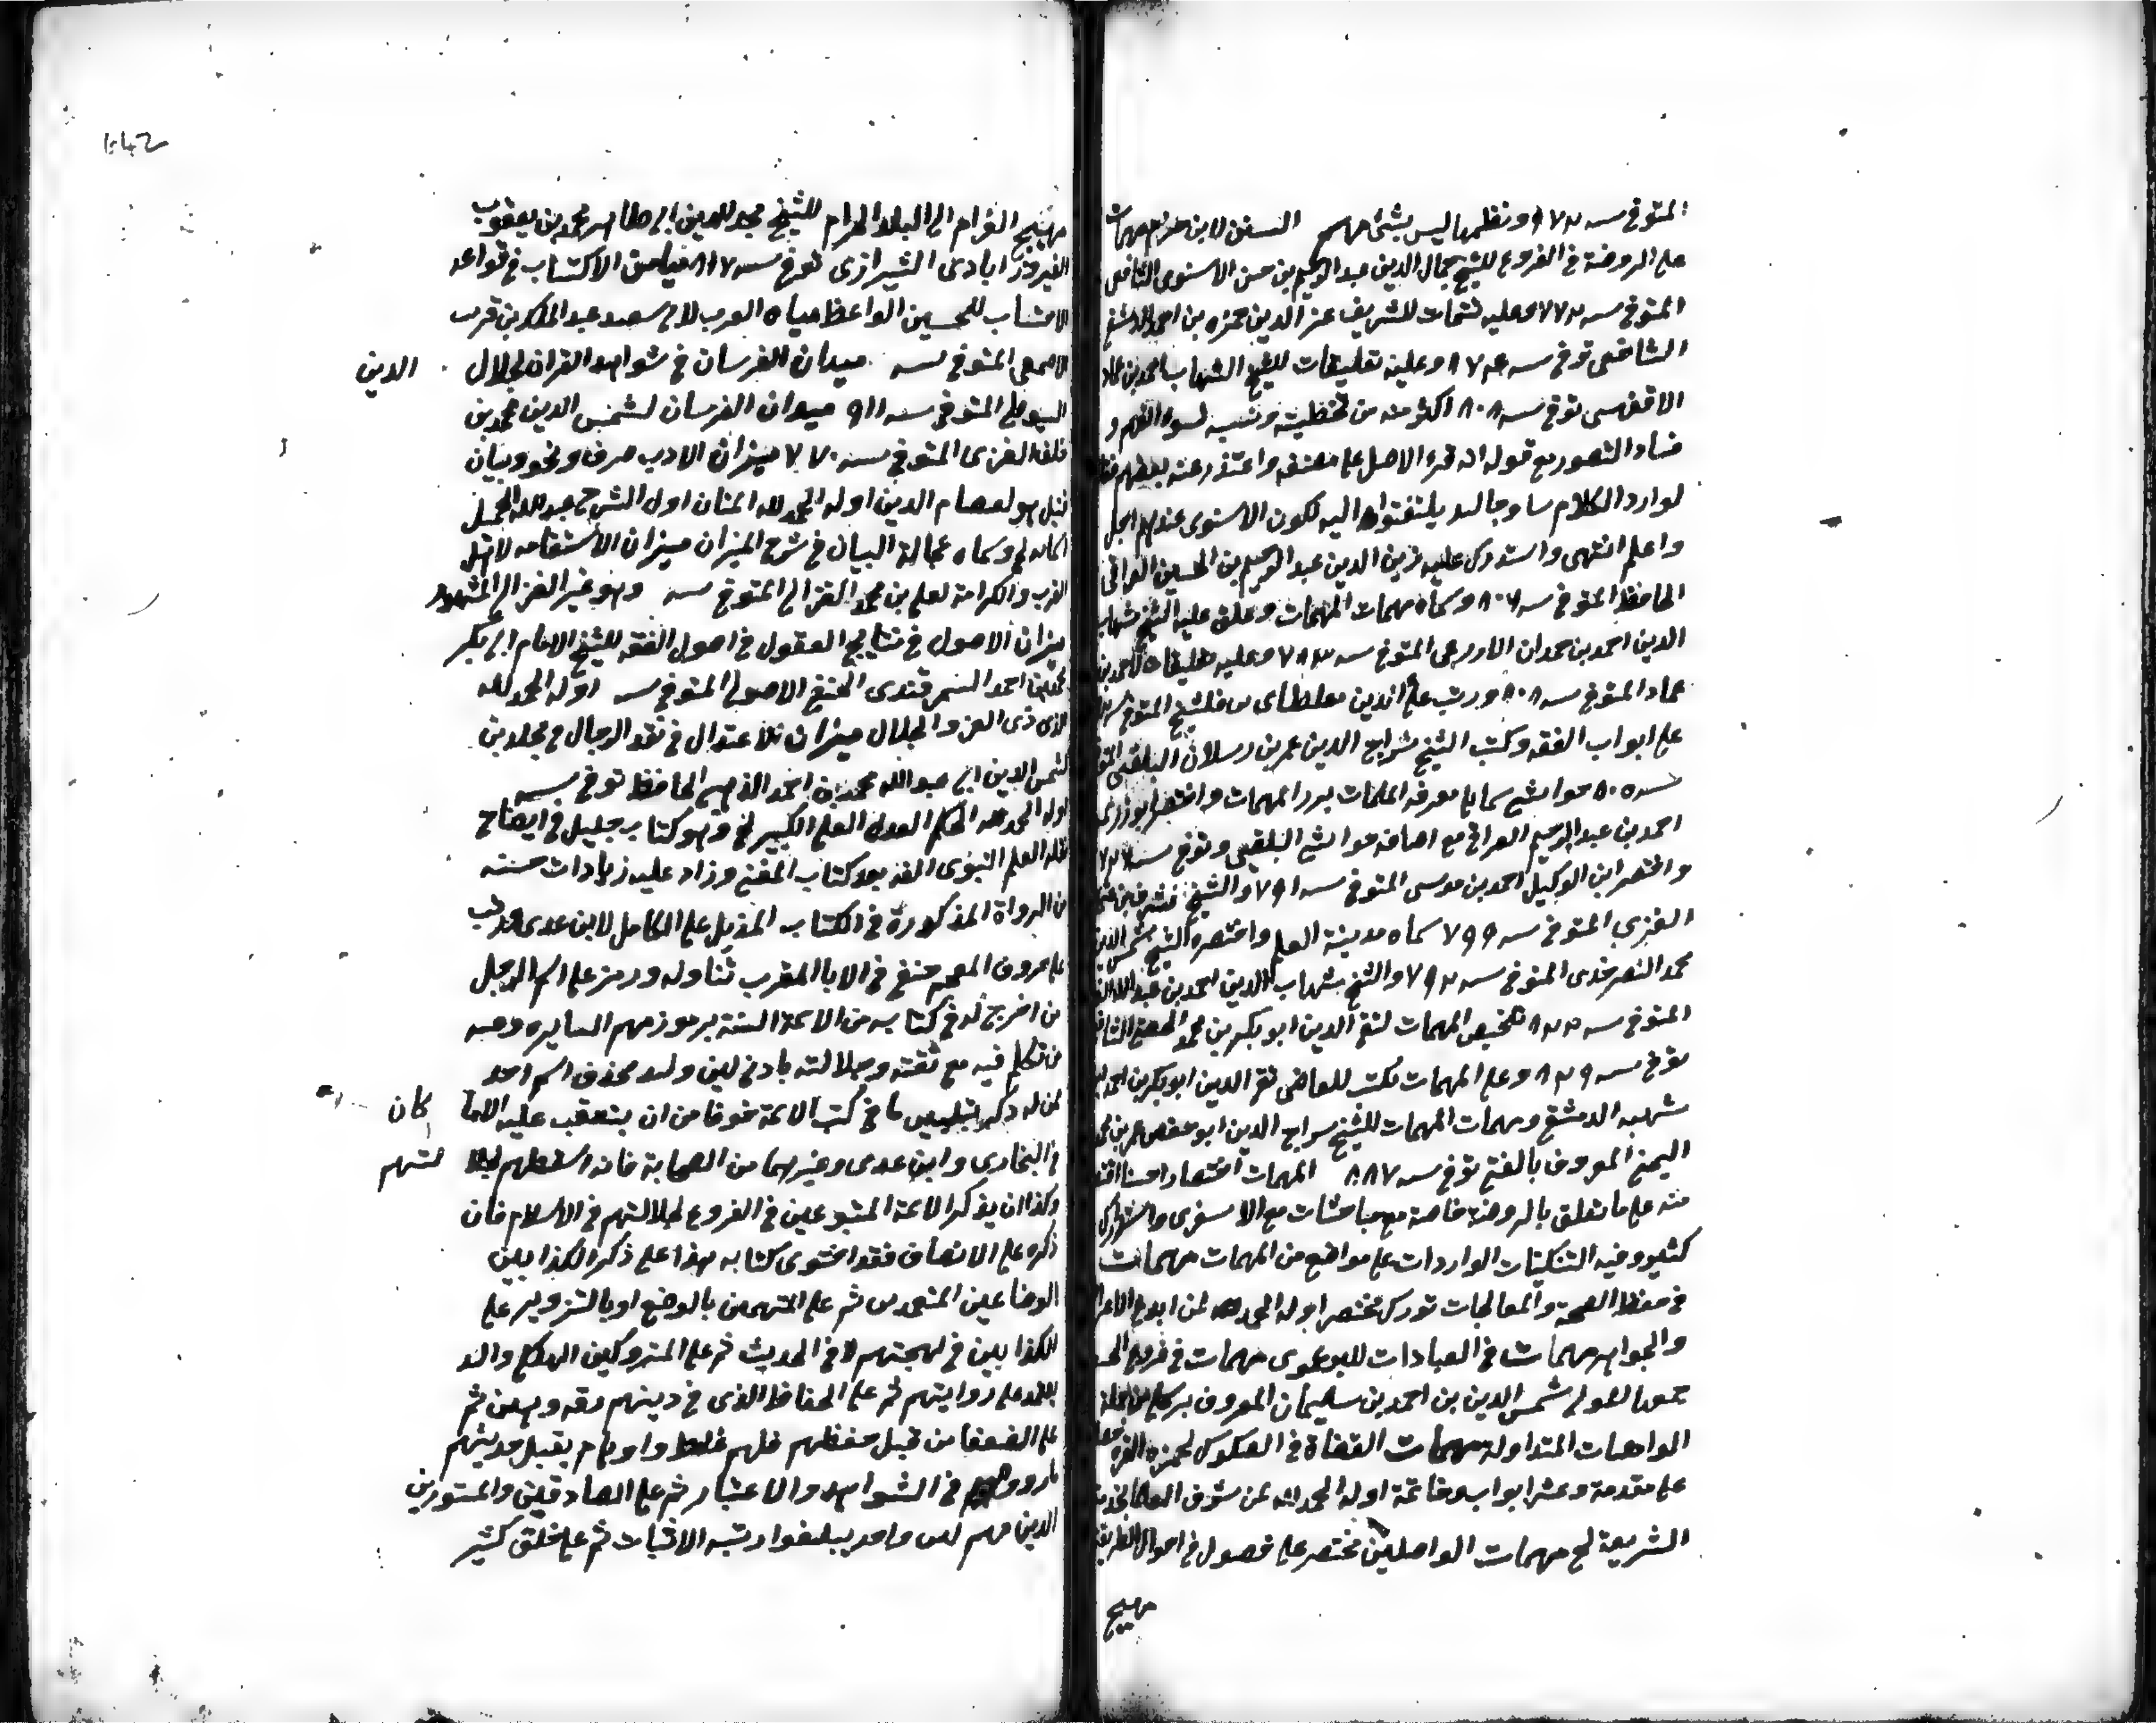 المتوفى سنة ٨٧٣ ونظمها ليس بشئ مهم السنن لابن حزم مهمات
على الروضة فى الفروع للشيخ جمال الدين عبد الرحيم بن حسن الاسنوى الشافعى
المتوفى سنة ٧٧٢ وعليه تتمات للشريف عز الدين حمزه بن احمد الدمشقى
الشافعى توفى سنة ٨٧٤ وعليه تعليقات للشيخ الشهاب احمد بن عماد
الاقفهسى توفى سنة ٨٠٨ اكثر منه من تخطيته ونسبه لسوء الفهم و
فساد التصور مع قوله انه قرء الاصل على مصنفه واعتذر عنه بعضهم
لوارد الكلام ساوجا لم يلتفتوا اليه لكون الاسنوى عندهم اجل
واعلم انتهى واستدرك عليه زين الدين عبد الرحيم بن الحسين العراقى
الحافظ المتوفى سنة ٨٠٦ وسماه مهمات المهمات وعلق عليه الشيخ شهاب
الدين احمد بن حمدان الاذرعى المتوفى سنة ٧٨٣ وعليه تعليقات لاحمد بن
عماد المتوفى سنة ٨٠٨ ورتب علاء الدين مغلطاى بن قليج المتوفى
على ابواب الفقه وكتب الشيخ سراج الدين عمر بن رسلان البلقينى
سنة ٨٠٥ حواشى سماها معرفة الملمات برد المهمات واختصر ابو زرعة
احمد بن عبد الرحيم العراقى مع اضافه حواشى البلقينى وتوفى سنة ٨٢٦
واختصر ابن الوكيل احمد بن موسى المتوفى سنة ٧٩١ والشيخ شرف بن
الغزى المتوفى سنة ٧٩٩ سماه مدينة العلم واختصره الشيخ شمس الدين
محمد الصرخدى المتوفى سنة ٧٩٢ والشيخ شهاب الدين احمد بن عبد الله
المتوفى سنة ٨٢٢ تلخيص المهمات لتقى الدين ابو بكر بن محمد الحصنى
توفى سنة ٨٢٩ وعلى المهمات نكت للقاضى تقى الدين ابو بكر بن احمد
شهبه الدمشقى ومهمات المهمات للشيخ سراج الدين ابو حفص عمر بن محمد
اليمنى المعروف بالفتى توفى سنة ٨٨٧ المهمات اختصارا حسنا
منه على ما تعلق بالروضة خاصة مع مباحثات مع الاسنوى واستدراك
كثير وفيه التنكيتات الواردات على مواضع من المهمات مهمات
فى حفظ الصحة والمعالجات تورك مختصر اوله الحمد لله لمن ابدع الاعراض
والجواهر مهمات فى العبادات للبوعوى مهمات فى فروع
جمعها المولى شمس الدين بن احمد بن سليمان المعروف
الواهبات المتداوله مهمات القضاة فى الصكوك لحمزه القره
على مقدمة وعشر ابواب وخاتمة اوله الحمد لله لمن شرف العلما
الشريعة الخ مهمات الواصلين مختصر على فصول فى احوال الطريقة
مهيج
مهيج الغرام الى البلد الحرام للشيخ مجد الدين ابى طاهر محمد بن يعقوب
الفيروز ابادى الشيرازى توفى سنة ٨١٧ ميامن الاكتساب فى قواعد
الاحتساب للحسين الواعظ مياه العرب لابى سعيد عبد الملك بن قريب
الاصمعى المتوفى سنة ميدان الفرسان فى شواهد القران لجلال الدين
السيوطى المتوفى سنة ٩١١ ميدان الفرسان لشمس الدين محمد بن
خلف الغزى المتوفى سنة ٧٧٠ ميزان الادب صرف ونحو وبيان
قيل هو لعصام الدين اوله الحمد لله المنان اول الشرح حمدا لله الجميل
الخ وسماه عجالة البيان فى شرح الميزان ميزان الاستقامه لاهل
القرب والكرامة لعلى بن محمد الغزالى المتوفى سنة وهو غير الغزالى المشهور
ميزان الاصول فى نتايج العقول فى اصول الفقه للشيخ الامام ابى بكر
محمد بن احمد السمرقندى الحنفى الاصولى المتوفى سنة اوله الحمد لله
الذى ذى العز والجلال ميزان الاعتدال فى نقد الرجال فى مجلدين
لشمس الدين ابى عبد الله محمد بن احمد الذهبى الحافظ توفى سنة
اوله الحمد لله الحكم العدل العلى الكبير الخ وهو كتاب جليل فى ايضاح
نقله العلم النبوى الفه بعد كتاب المغنى وزاد عليه زيادات حسنه
من الرواة المذكورة فى الكتاب المذيل على الكامل لابن عدى مرتب
على حروف المعجم حتى فى الابا المقرب تناوله ورمز على اسم الرجل
من اخرج له فى كتابه من الائمة الستة برموزهم السايره وفيه
من تكلم فيه مع ثقته وجلالته بادنى لين ولم يحذف اسم احد
ممن له ذكر بتليين ما فى كتب الائمة خوفا من ان يتعقب عليه الا ما كان
فى البخارى وابن عدى وغيرهما من الصحابة فانه اسقطهم لجلالتهم
وكذا لن يذكر الائمة المتبوعين فى الفروع لجلالتهم فى الاسلام فان
ذكره على الانصاف فقد احتوى كتابه هذا على ذكر الكذابين
الوضاعين المتعمدين ثم على المتهمين بالوضع او بالتزوير على
الكذابين فى لهجتهم لا فى الحديث ثم على المتروكين الهلكى والد
يعتمد على روايتهم ثم على الحفاظ الذى فى دينهم رقه ووهن ثم
على الضعفا من قبل حفظهم فلهم غلط واوهام يقبل حديثهم
ما رووه فى الشواهد والاعتبار ثم على الصادقين والمستورين
الذين منهم لين ولم يبلغوا رتبه الاثبات ثم على خلق كثير